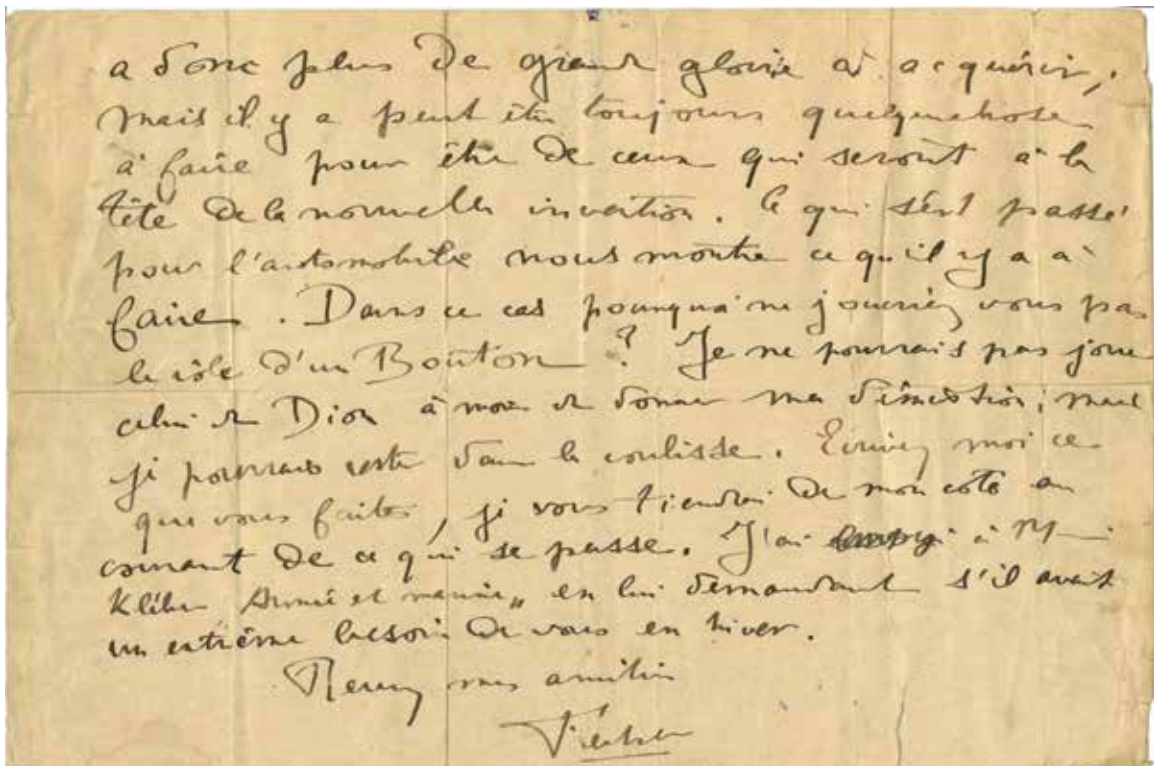 a donc plus de grande gloire à acquérir,
mais il y a peut être toujours quelquechose
à faire pour être de ceux qui seront à la
tête de la nouvelle invention. Ce qui s'est passé
pour l'automobile nous montre ce qu'il y a à
faire. Dans ce cas pourquoi ne joueriez vous pas
le rôle d'un Bouton ? Je ne pourrais pas jouer
celui de Dion à moins de donner ma démission ; mais
je pourrais rester dans la coulisse. Ecrivez moi ce
que vous faites, je vous tiendrai de mon coté au
courant de ce qui se passe. J'ai à
Kléber Armée et marine„ en lui demandant s'il avait
un extrème besoin de vous en hiver.
mes amitiés